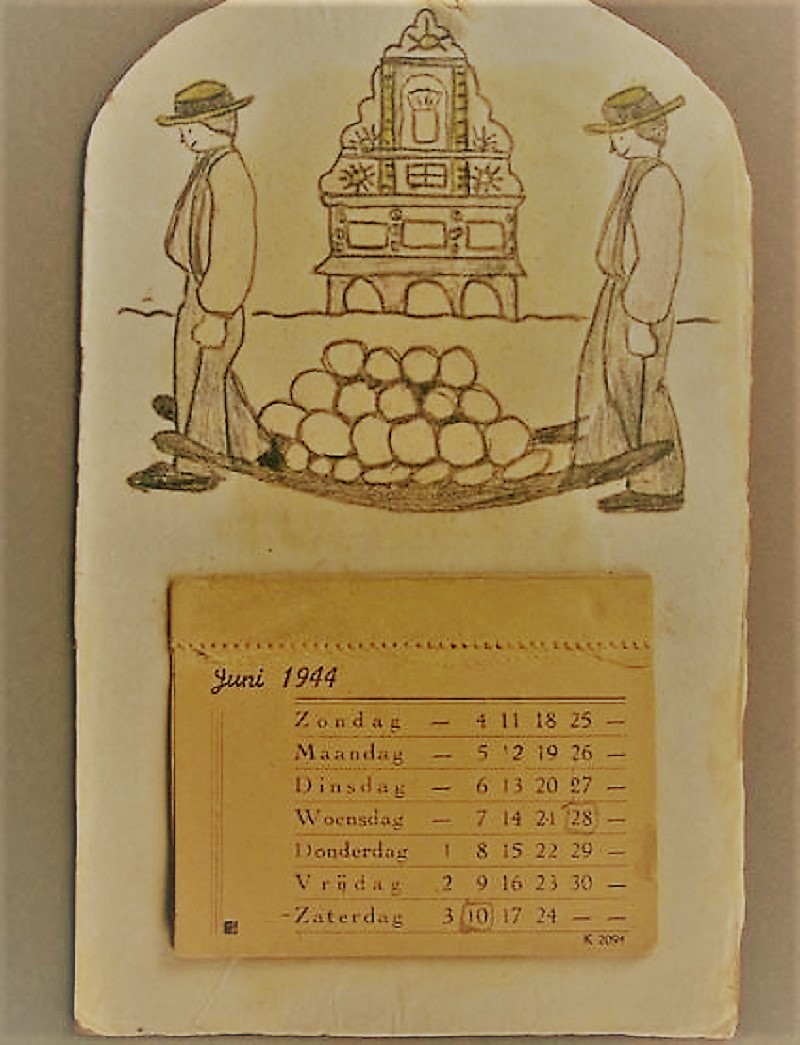 Juni 1944
Zondag — 4 11 18 25 —
Maandag — 5 12 19 26 —
Dinsdag — 6 13 20 27 —
Woensdag — 7 14 21 28 —
Donderdag 1 8 15 22 29 —
Vrijdag 2 9 16 23 30 —
-Zaterdag 3 10 17 24 — —
K 2094